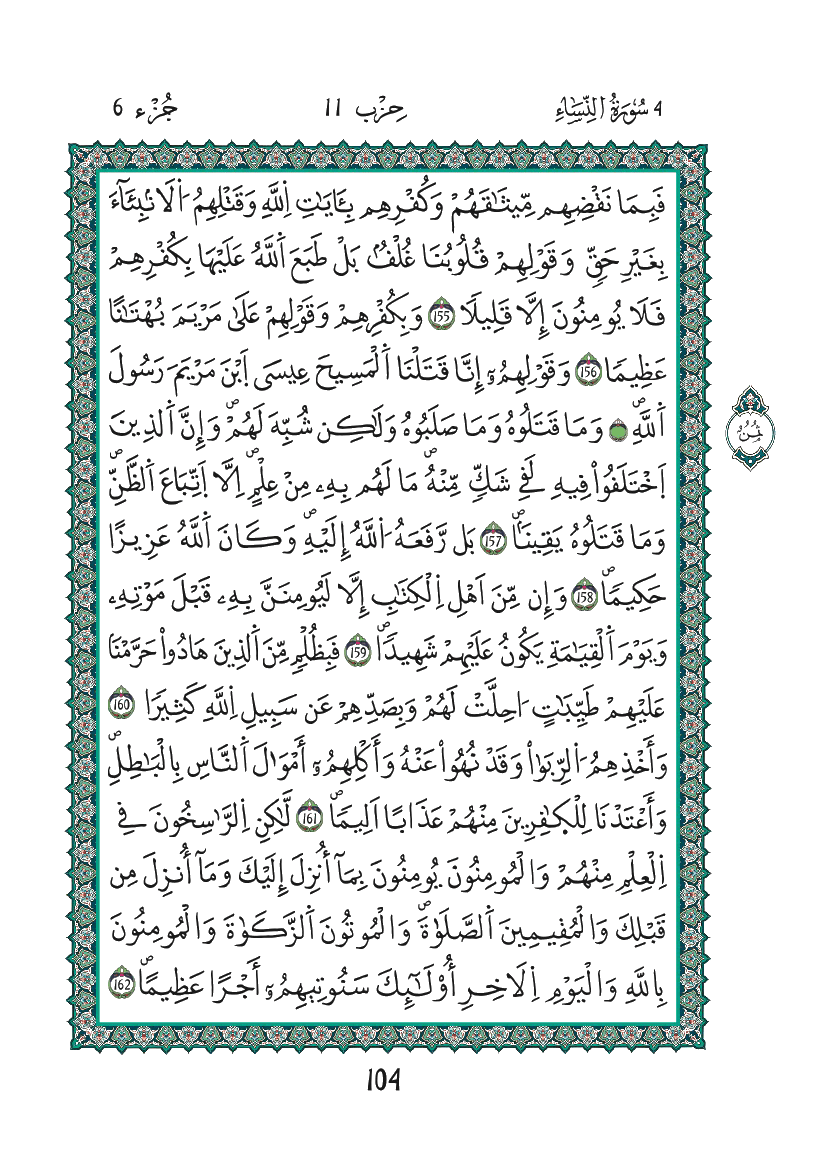 4 سُورَةُ النِّسَاءِ حِزْب 11 جُزْء 6
فَبِمَا نَقْضِهِم مِّيثَٰقَهُمْ وَكُفْرِهِم بِـَٔايَٰتِ اِ۬للَّهِ وَقَتْلِهِمُ اُ۬لَانۢبِئَآءَ
بِغَيْرِ حَقّٖ وَقَوْلِهِمْ قُلُوبُنَا غُلْفُۢ بَلْ طَبَعَ اَ۬للَّهُ عَلَيْهَا بِكُفْرِهِمْ
فَلَا يُومِنُونَ إِلَّا قَلِيلٗا 155 وَبِكُفْرِهِمْ وَقَوْلِهِمْ عَلَىٰ مَرْيَمَ بُهْتَٰناً
عَظِيماٗ 156 وَقَوْلِهِمُۥٓ إِنَّا قَتَلْنَا اَ۬لْمَسِيحَ عِيسَى اَ۪بْنَ مَرْيَمَ رَسُولَ
اَ۬للَّهِۖ وَمَا قَتَلُوهُ وَمَا صَلَبُوهُ وَلَٰكِن شُبِّهَ لَهُمْۖ وَإِنَّ اَ۬لذِينَ
اَ۪خْتَلَفُواْ فِيهِ لَفِے شَكّٖ مِّنْهُۖ مَا لَهُم بِهِۦ مِنْ عِلْمٍۖ اِلَّا اَ۪تِّبَاعَ اَ۬لظَّنِّۖ
وَمَا قَتَلُوهُ يَقِيناَۢۖ 157 بَل رَّفَعَهُ اُ۬للَّهُ إِلَيْهِۖ وَكَانَ اَ۬للَّهُ عَزِيزاً
حَكِيماٗۖ 158 وَإِن مِّنَ اَهْلِ اِ۬لْكِتَٰبِ إِلَّا لَيُومِنَنَّ بِهِۦ قَبْلَ مَوْتِهِۦ
وَيَوْمَ اَ۬لْقِيَٰمَةِ يَكُونُ عَلَيْهِمْ شَهِيداٗۖ 159 فَبِظُلْمٖ مِّنَ اَ۬لذِينَ هَادُواْ حَرَّمْنَا
عَلَيْهِمْ طَيِّبَٰتٍ ا۟حِلَّتْ لَهُمْ وَبِصَدِّهِمْ عَن سَبِيلِ اِ۬للَّهِ كَثِيراٗ 160
وَأَخْذِهِمُ اُ۬لرِّبَوٰاْ وَقَدْ نُهُواْ عَنْهُ وَأَكْلِهِمُۥٓ أَمْوَٰلَ اَ۬لنَّاسِ بِالْبَٰطِلِۖ
وَأَعْتَدْنَا لِلْكٰ۪فِرِينَ مِنْهُمْ عَذَاباً اَلِيماٗۖ 161 لَّٰكِنِ اِ۬لرَّٰسِخُونَ فِے
اِ۬لْعِلْمِ مِنْهُمْ وَالْمُومِنُونَ يُومِنُونَ بِمَآ أُنزِلَ إِلَيْكَ وَمَآ أُنزِلَ مِن
قَبْلِكَ وَالْمُقِيمِينَ اَ۬لصَّلَوٰةَۖ وَالْمُوتُونَ اَ۬لزَّكَوٰةَ وَالْمُومِنُونَ
بِاللَّهِ وَالْيَوْمِ اِ۬لَاخِرِ أُوْلَٰٓئِكَ سَنُوتِيهِمُۥٓ أَجْراً عَظِيماًۖ 162
ثُمُنُ
104